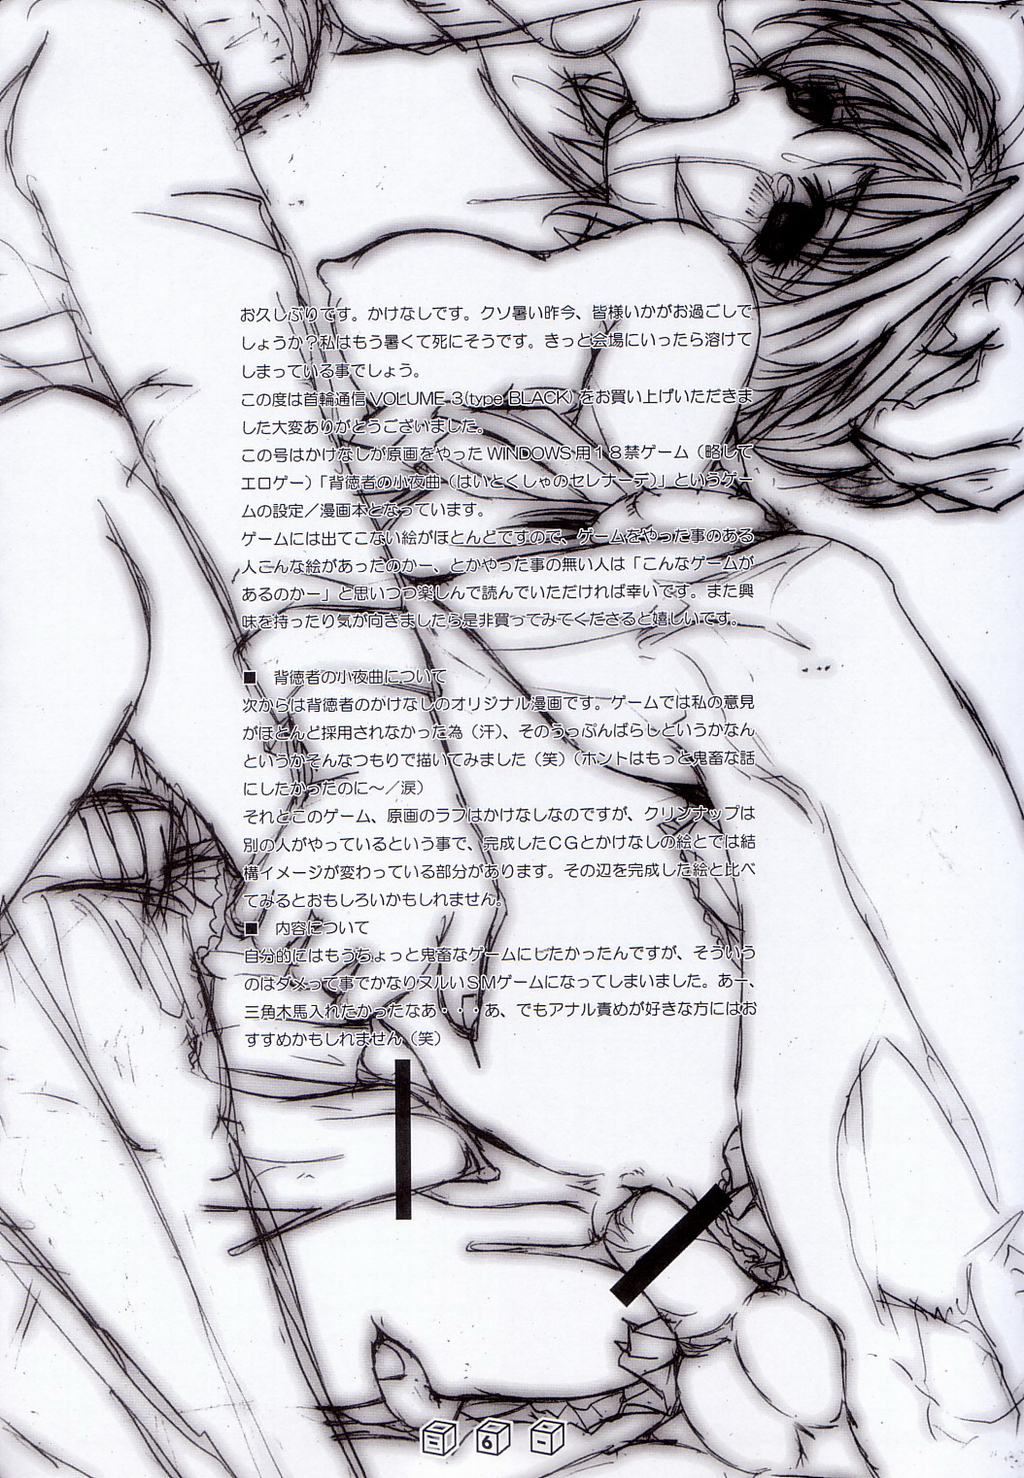 お久しぶりです。かけなしです。クソ暑い昨今、皆様いかがお過ごしで
しょうか？私はもう暑くて死にそうです。きっと会場にいったら溶けて
しまっている事でしょう。
この度は首輪通信VOLUME 3(type BLACK) をお買い上げいただきま
した大変ありがとうございました。
この号はかけなしが原画をやった WINDOWS 用１８禁ゲーム（略して
エロゲー）「背徳者の小夜曲（はいとくしゃのセレナーデ）」というゲー
ムの設定／漫画本となっています。
ゲームには出てこない絵がほとんどですので、ゲームをやった事のある
人こんな絵があったのかー、とかやった事の無い人は「こんなゲームが
あるのかー」と思いつつ楽しんで読んでいただければ幸いです。また興
味を持ったり気が向きましたら是非買ってみてくださると嬉しいです。
■　背徳者の小夜曲について
次からは背徳者のかけなしのオリジナル漫画です。ゲームでは私の意見
がほとんど採用されなかった為（汗）、そのうっぷんばらしというかなん
というかそんなつもりで描いてみました（笑）（ホントはもっと鬼畜な話
にしたかったのに〜／涙）
それとこのゲーム、原画のラフはかけなしなのですが、クリンナップは
別の人がやっているという事で、完成したＣＧとかけなしの絵とでは結
構イメージが変わっている部分があります。その辺を完成した絵と比べ
てみるとおもしろいかもしれません。
■　内容について
自分的にはもうちょっと鬼畜なゲームにしたかったんですが、そういう
のはダメって事でかなりヌルいＳＭゲームになってしまいました。あー、
三角木馬入れたかったなあ・・・あ、でもアナル責めが好きな方にはお
すすめかもしれません（笑）
6